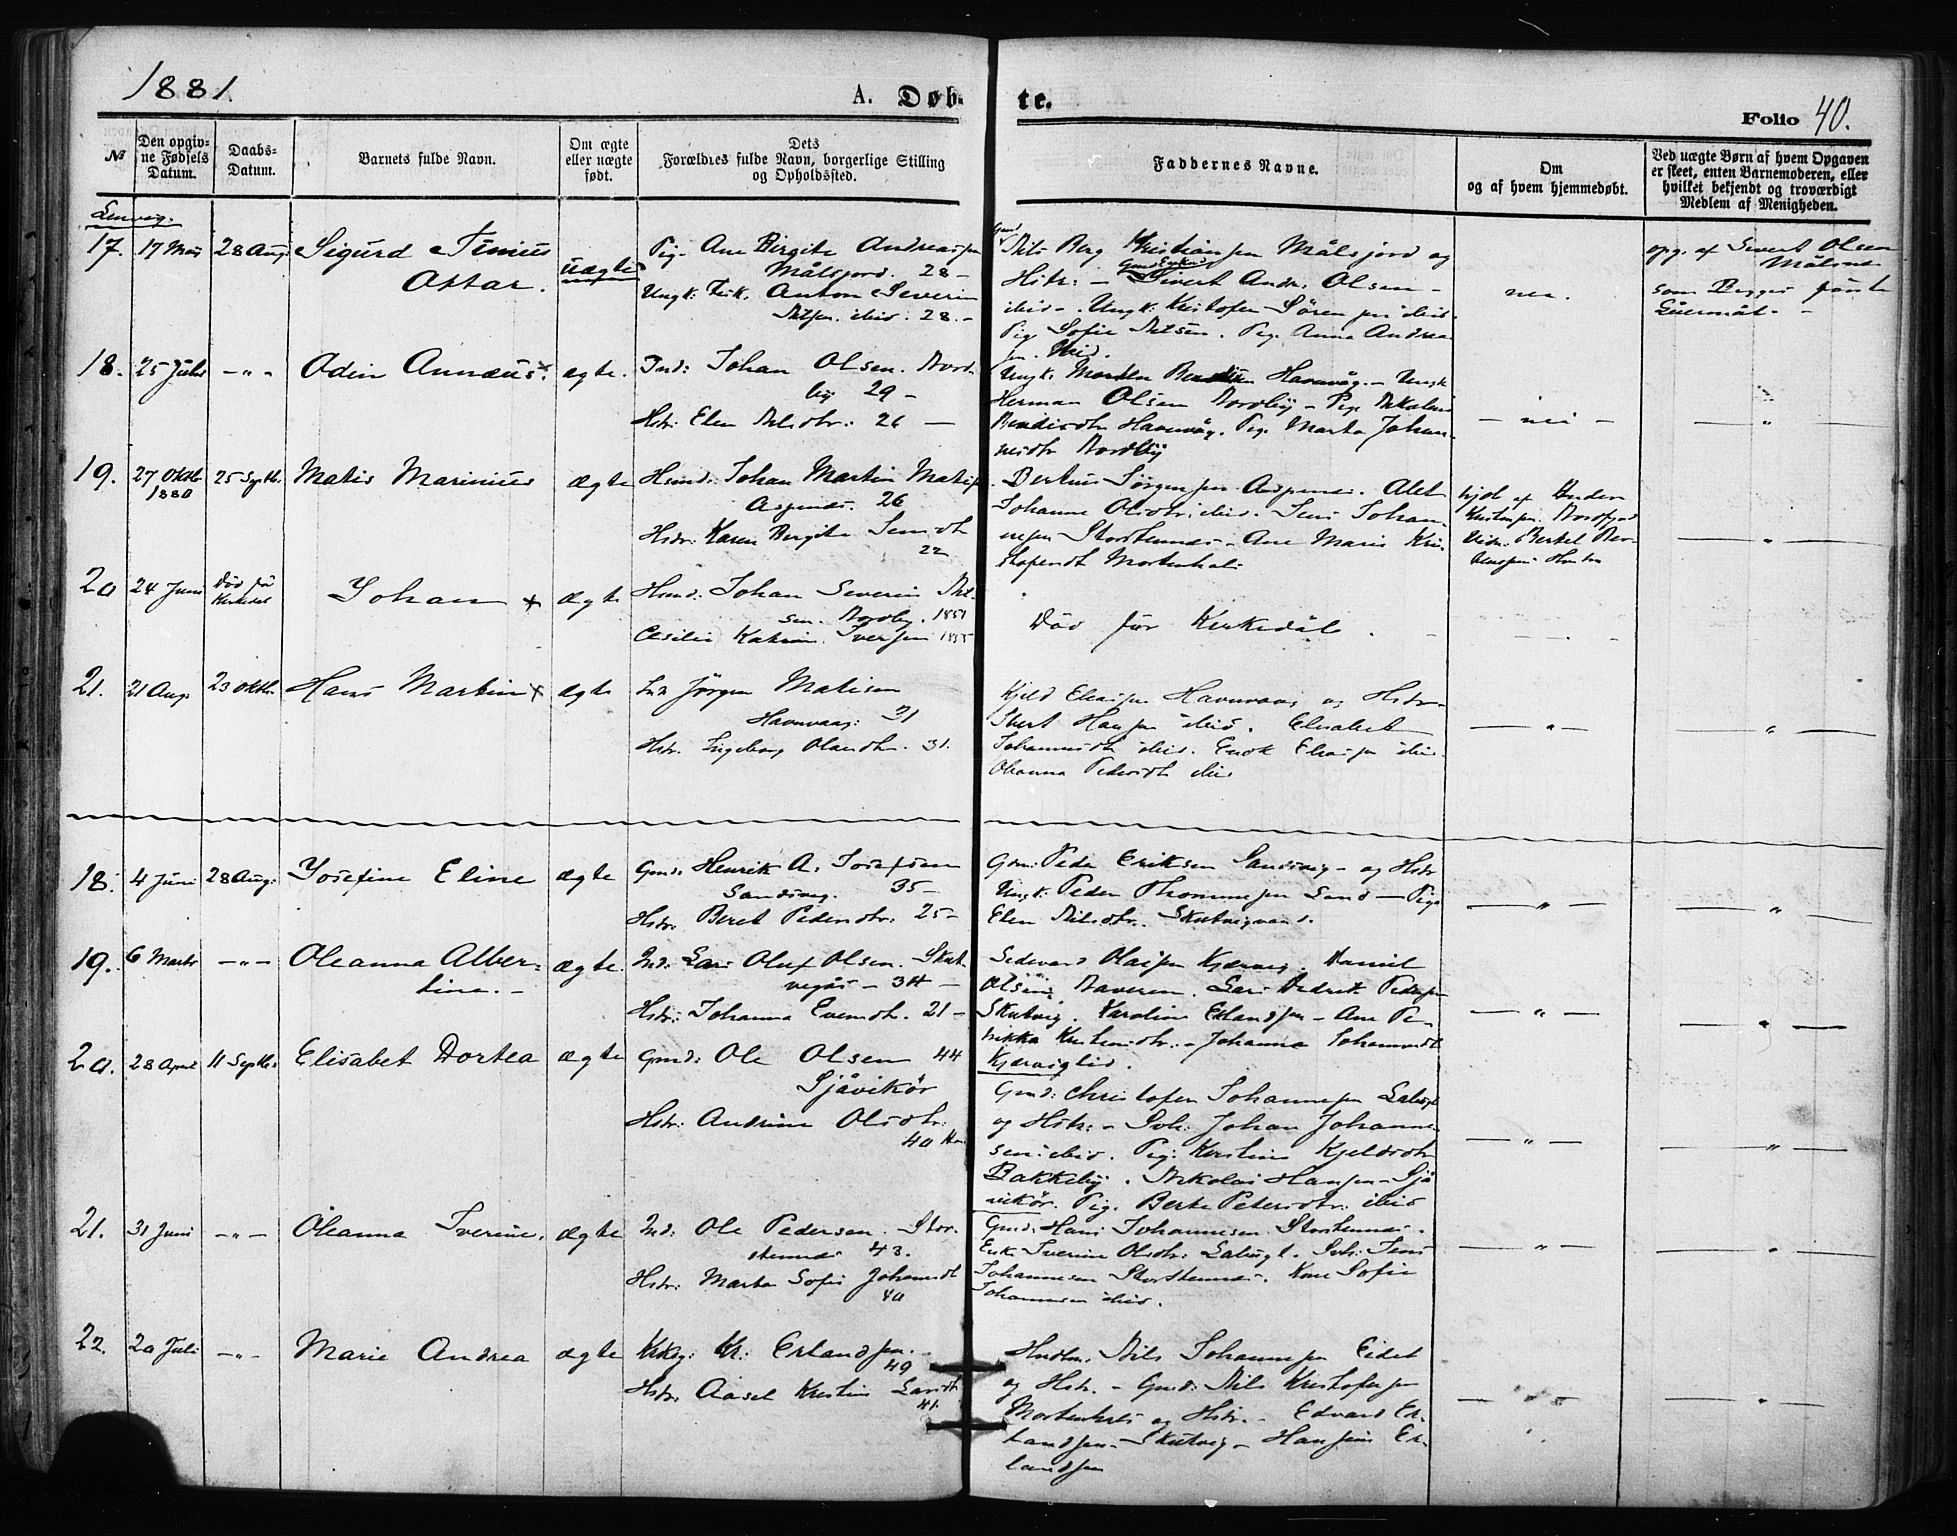 1881.
A. Døb-
te.
Folio 40.
№
Den opgiv-
ne Fødsels
Datum.
Daabs-
Datum.
Barnets fulde Navn.
Om ægte
eller uægte
født.
Dets
Forældres fulde Navn, borgerlige Stilling
og Opholdssted.
Faddernes Navne.
Om
og af hvem hjemmedøbt.
Ved uægte Børn af hvem Opgaven
er skeet, enten Barnemoderen, eller
hvilket bekjendt og troværdigt
Medlem af Menigheden.
Lenvig.
17. 17 Mai 28 Aug. Sigurd Tinius
Ottar.
uægte
Pig. Ane Birgite Andreassen
Målsjord. 28 –
Ungk: Fisk. Anton Severin
Nilsen. ibid. 28. –
Gmd
Nils Berg Kristiansen Målsjord og
Hstr: – Sivert Andr. Olsen –
ibid –. Ungk: Kristofer Sören sen ibid.
Pig Sofie Nilsen. Pig. Anna Andrea
sen. ibid.
nei.
opg. af Sivert Olsen
som Begges
18. 25 Juli – „ – Odin Annæus × ægte.
Ind: Johan Olsen. Nord-
by 29 –
Hstr: Elen Nilsdtr: 26 –
Ungk: Morten Havnvåg. – Ungk
Herman Olsen Nordby – Pig. Nikoline
Bendiksdtr Havnvåg. Pig. Marta Johan-
nesdtr Nordby
– nei –
– „ –
19. 27 Oktbr
1880
25 Septbr. Matis Marinius ægte
Hsmd: Johan Martin Matis
Aspenes. 26
Hstr: Karen Birgite Jensdtr
22
Bertius Jörgensen Aspenes. Alet
Johanne Olsdtr. ibid. Jens Johan-
nesen Storstennes – Ane Marie Kris-
stofersdt Mortenhals
hjdb af Anders
Kristensen. Nordfjord
– „ –
20 24 Juni Död för
Kirkedåb
Johan × ægte
Hsmd: Johan Severin Nil-
sen. Nordby. 1851
Cecilie Katrine Iversen 1855
Död för Kirkedåb.
21. 21 Aug. 23 Oktbr. Hans Martin × ægte
Ind Jörgen Matisen
Havnvaag: 31
Hstr. Ingeborg Olausdtr. 31.
Kjeld Eliassen Havnvaag og Hstr.
Sivert Hansen ibid. Elisabet
Johannesdtr ibid. Enok Eliassen ibid
Oleanna Pedersdt ibid
– „ –
– „ –
18. 4 Juni 28 Aug. Josefine Eline ægte
Gmd. Henrik A. Josefsen
Sandsvig. 35 –
Hstr. Beret Pedersdtr. 25 –
Gdm: Peder Eriksen Sandsvig – og Hstr
Ungk: Peder Thommesen Sand – Pige
Elen Nilsdtr. Skutvigvand.
– „ –
– „ –
19. 6 Marts – „ – Oleanna Alber-
tine. –
ægte.
Ind: Lars Oluf Olsen. Skut
vigås – 34 –
Hstr: Johanna Evensdtr. 21 –
Sedevard Olaisen Kjærvig. Daniel
Olsen Naveren. Lars Hedrik Pedersen
Skutvig. Karoline Erlandsen – Ane Pe-
rikka Kristensdtr: – Johanna Johannesdt
Kjærviglid.
– „ –
– „ –
20. 28 April 11 Septbr: Elisabet Dortea ægte
Gmd: Ole Olsen 44
Sjåvikör
Hstr: Andrine Olsdtr.
40
Gmd: Christofer Johannesen Lakvgt
og Hstr: – Johan Johanne-
sen ibid. Pig: Kirstine Kjeldsdtr
Bakkeby. Nikolai Hansen – Sjå
vikör. Pig. Berte Petersdtr. ibid
– „ –
– „ –
21. 31 Juni – „ – Oleanna Iverine. ægte
Ind: Ole Pedersen. Stor-
stennes 43.
Hstr: Marta Sofie Johansdt
40
Gmd: Hans Johannesen Storstennes.
Enk. Iverine Olsdtr: Lakvgt. Jens
Johannesen Storstennes. Kone Sofie
Johannesen ibid.
– „ –
– „ –
22. 20 Juli – „ – Marie Andrea ægte
Kr: Erlandsen.
49
Hstr. Aasel Kristine Larsdtr.
41.
Nils Johannesen Eidet
og Hstr. – Gmd: Nils Kristofersen
Mortenhals og Hstr. – Edvard Er-
landsen – Skutvig – Hansine Er-
landsen
– „ –
– „ –